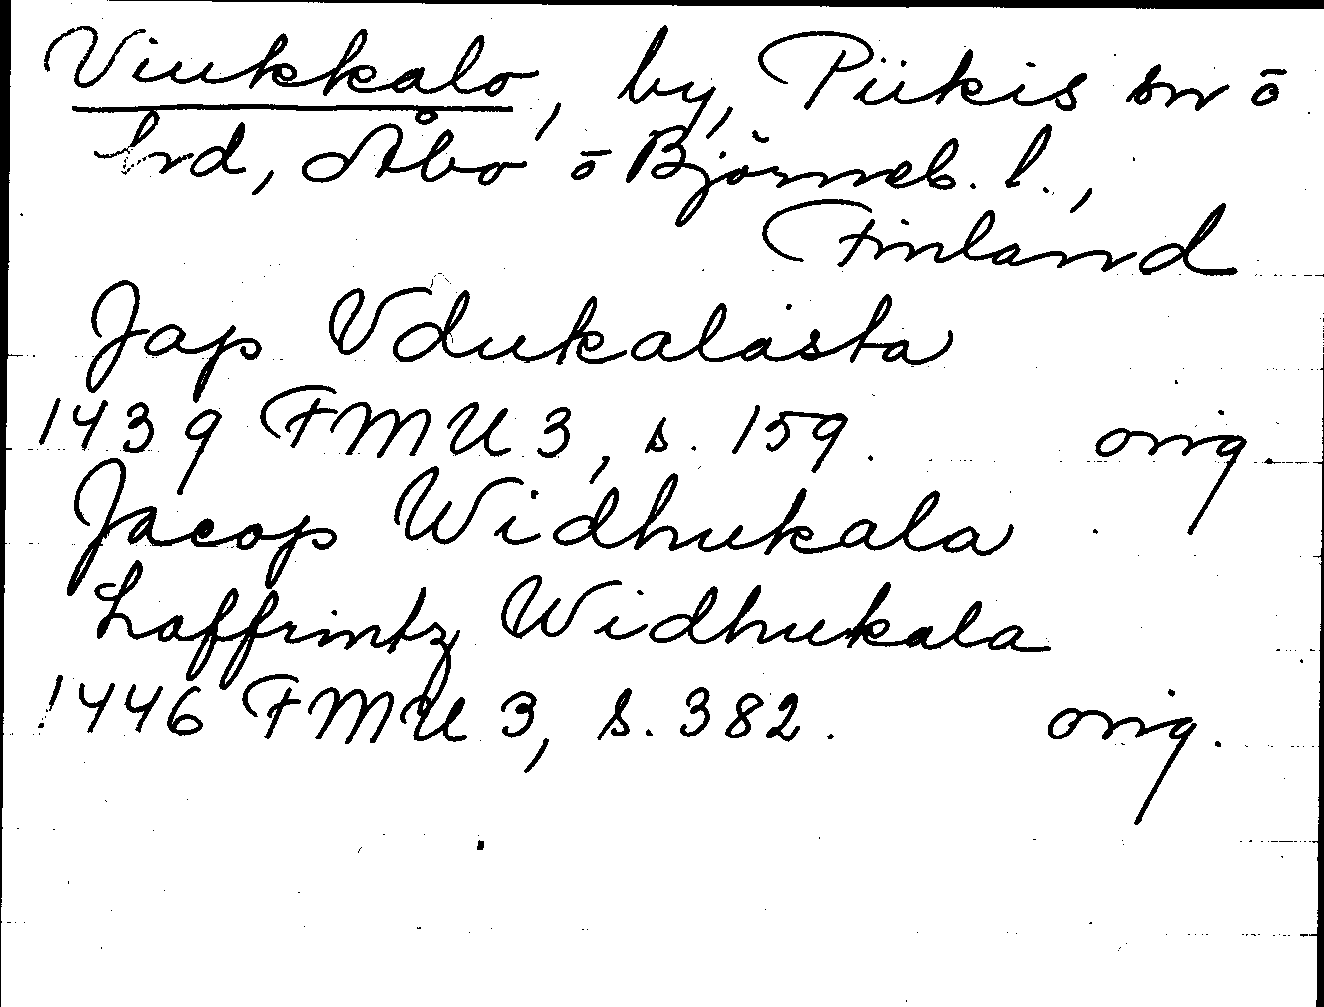 Viukkalo, by, Piikis sn ō
hrd, Åbo ō Björneb. l.,
Finland
Jap Vdukalasta
1439 FMU 3, s. 159. orig.
Jacop Widhukala
Laffrintz Widhukala
1446 FMU 3, s. 382. orig.